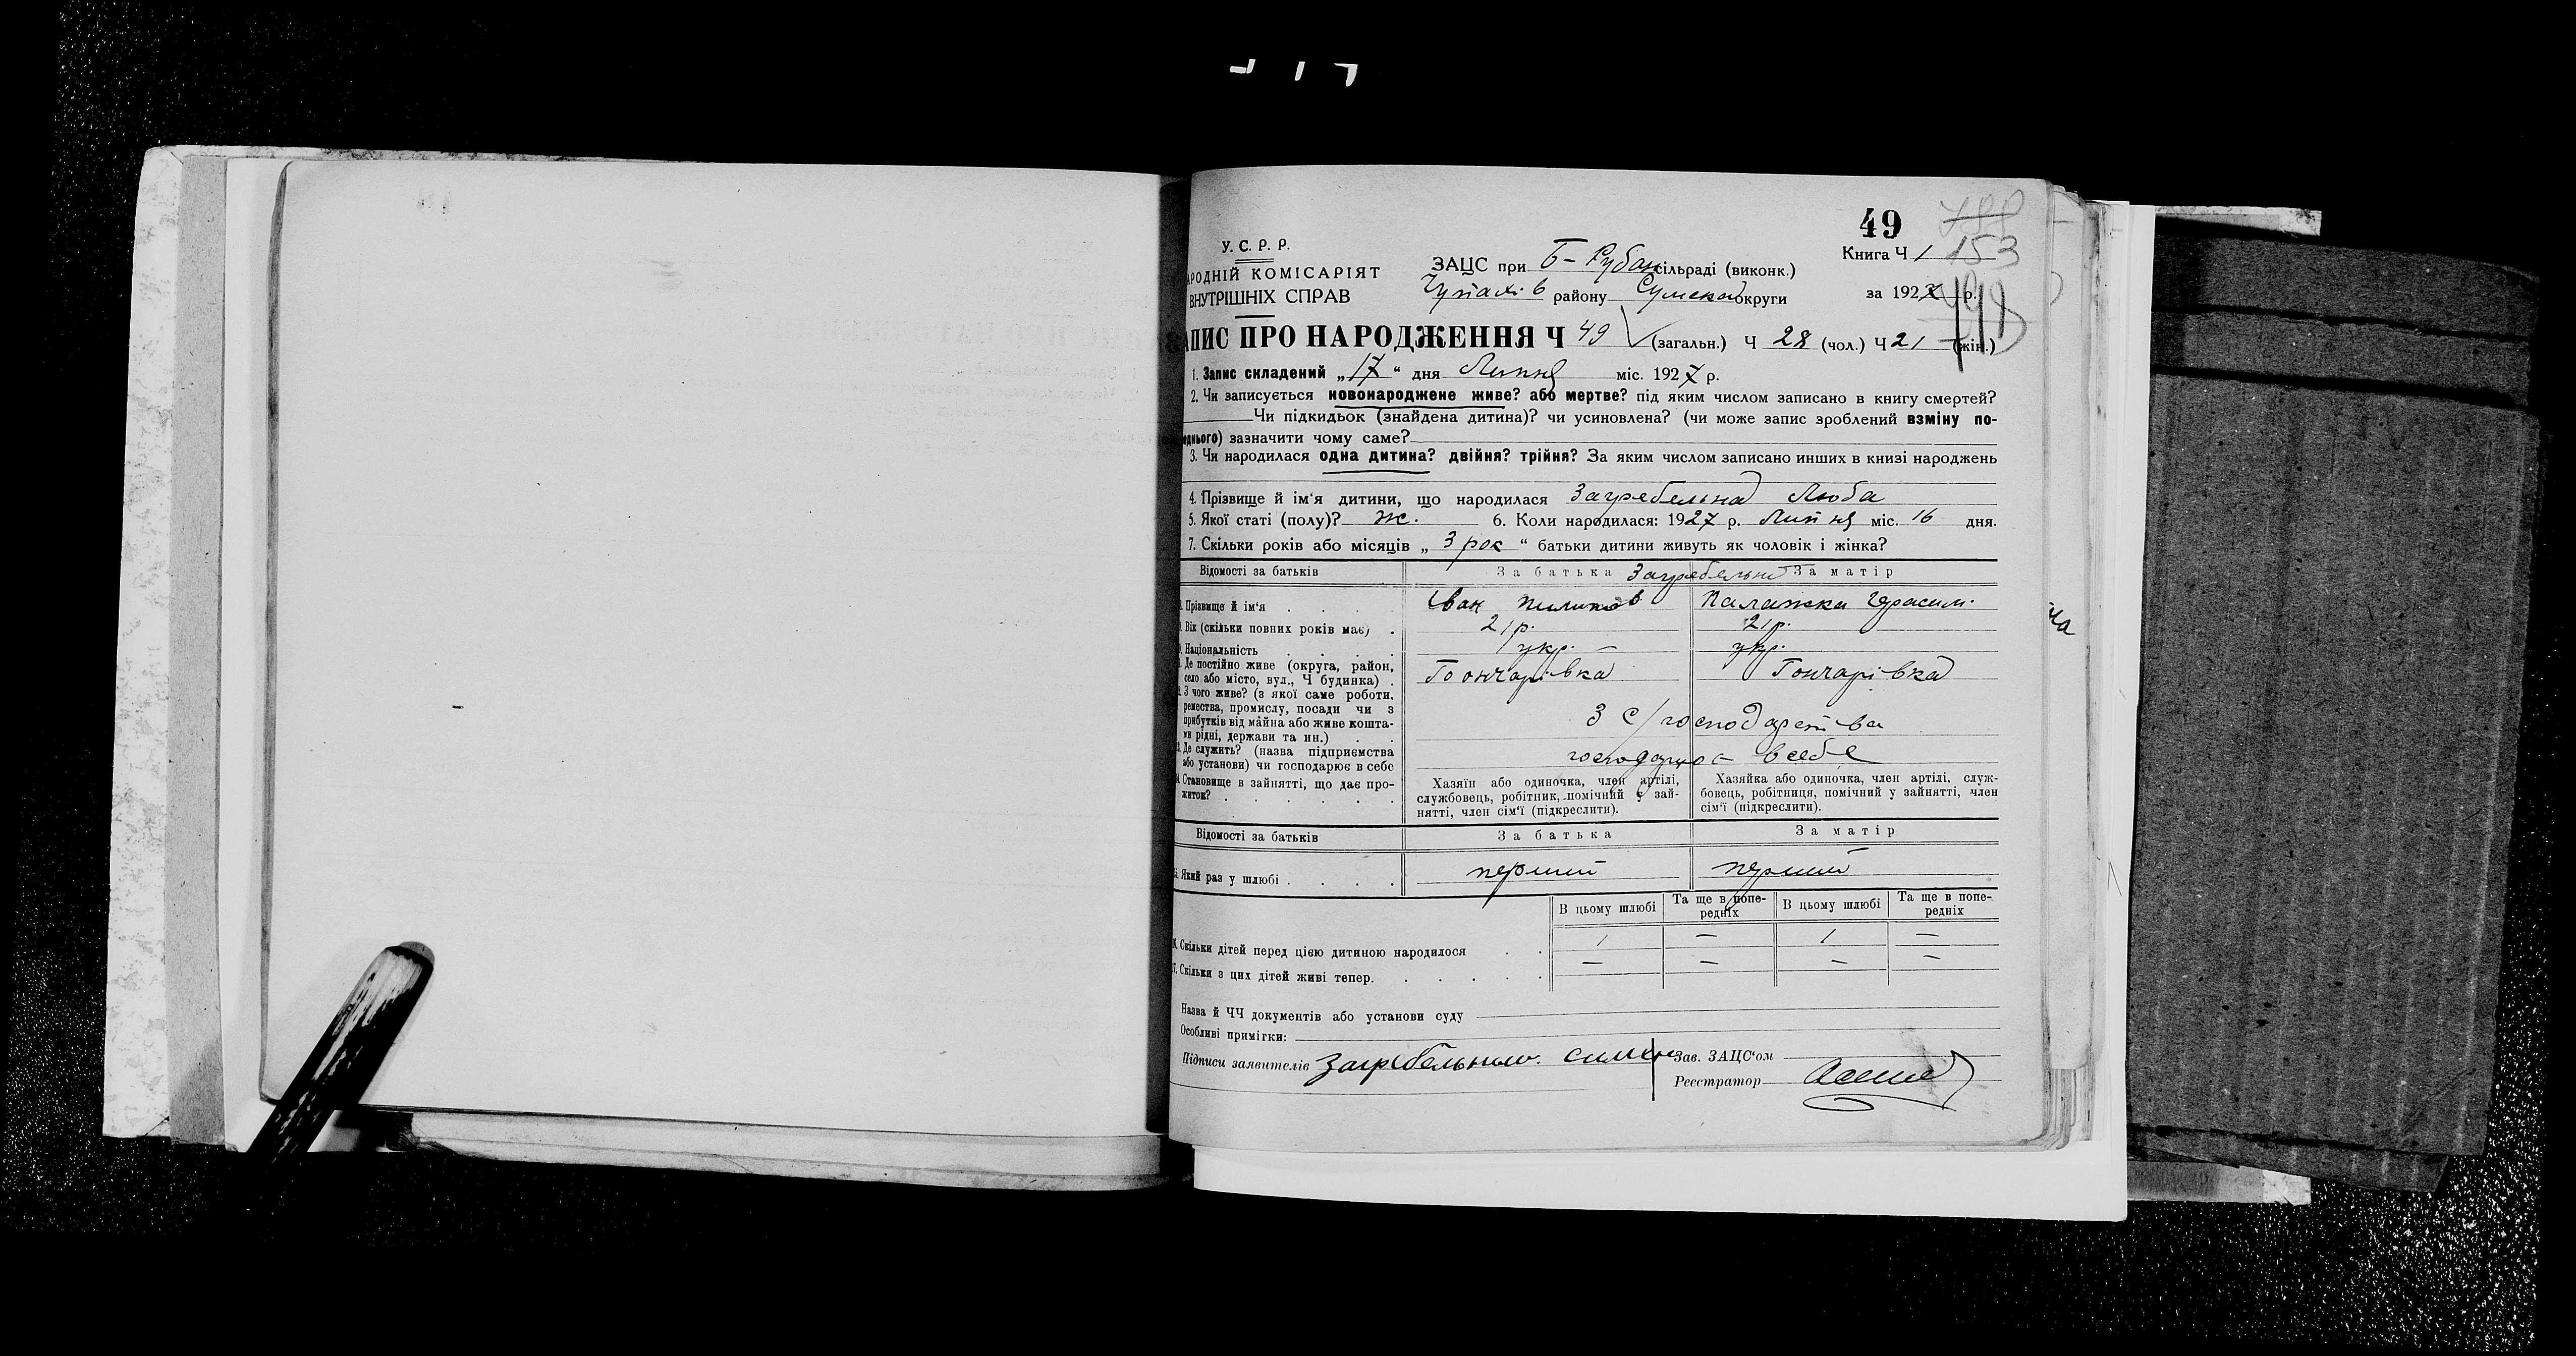 49
У. С. Р. Р.
АРОДНІЙ КОМІСАРІЯТ
ВНУТРІШНІХ СПРАВ
Книга Ч 1 153
ЗАЦС при Б-Рубан сільраді (виконк.)
Чупахів району Сумської округи за 1927 р.
АПИС ПРО НАРОДЖЕННЯ Ч 49 (загальн.) Ч 28 (чол.) Ч 21 (жін.)
1. Запис складений „17“ дня Липня міс. 1927 р.
2. Чи записується новонароджене живе? або мертве? під яким числом записано в книгу смертей?
Чи підкидьок (знайдена дитина)? чи усиновлена? (чи може запис зроблений взміну по-
еднього) зазначити чому саме?
3. Чи народилася одна дитина? двійня? трійня? За яким числом записано инших в книзі народжень
4. Прізвище й ім'я дитини, що народилася Загребельна Люба
5. Якої статі (полу)? ж. 6. Коли народилася: 1927 р. Липня міс. 16 дня.
7. Скільки років або місяців „3 рок“ батьки дитини живуть як чоловік і жінка?
Відомості за батьків За батька Загребельні За матір
Прізвище й ім'я . . . . Іван Пилипов Палажка Герасим.
Вік (скільки повних років має) . 21р. 21р.
Національність . . . . укр. укр.
Де постійно живе (округа, район,
село або місто, вул., Ч будинка) . Гончарівка Гончарівка
З чого живе? (з якої саме роботи,
ремества, промислу, посади чи з
прибутків від майна або живе кошта-
ми рідні, держави та ин.) . . З с/господарства
Де служить? (назва підприємства
або установи) чи господарює в себе господарює в себе
Становище в зайнятті, що дає про-
житок? . . . . . .
Хазяїн або одиночка, член артілі,
службовець, робітник, помічний у зай-
нятті, член сім'ї (підкреслити).
Хазяйка або одиночка, член артілі, служ-
бовець, робітниця, помічний у зайнятті, член
сім'ї (підкреслити).
Відомості за батьків За батька За матір
Який раз у шлюбі . . . . перший перший
В цьому шлюбі Та ще в попе-редніх В цьому шлюбі Та ще в попе-редніх
Скільки дітей перед цією дитиною народилося . . 1 — 1 —
Скільки з цих дітей живі тепер. . . . . . — — — —
Назва й ЧЧ документів або установи суду
Особливі примігки:
Підписи заявителів Загребельный Зав. ЗАЦС'ом
Реєстратор